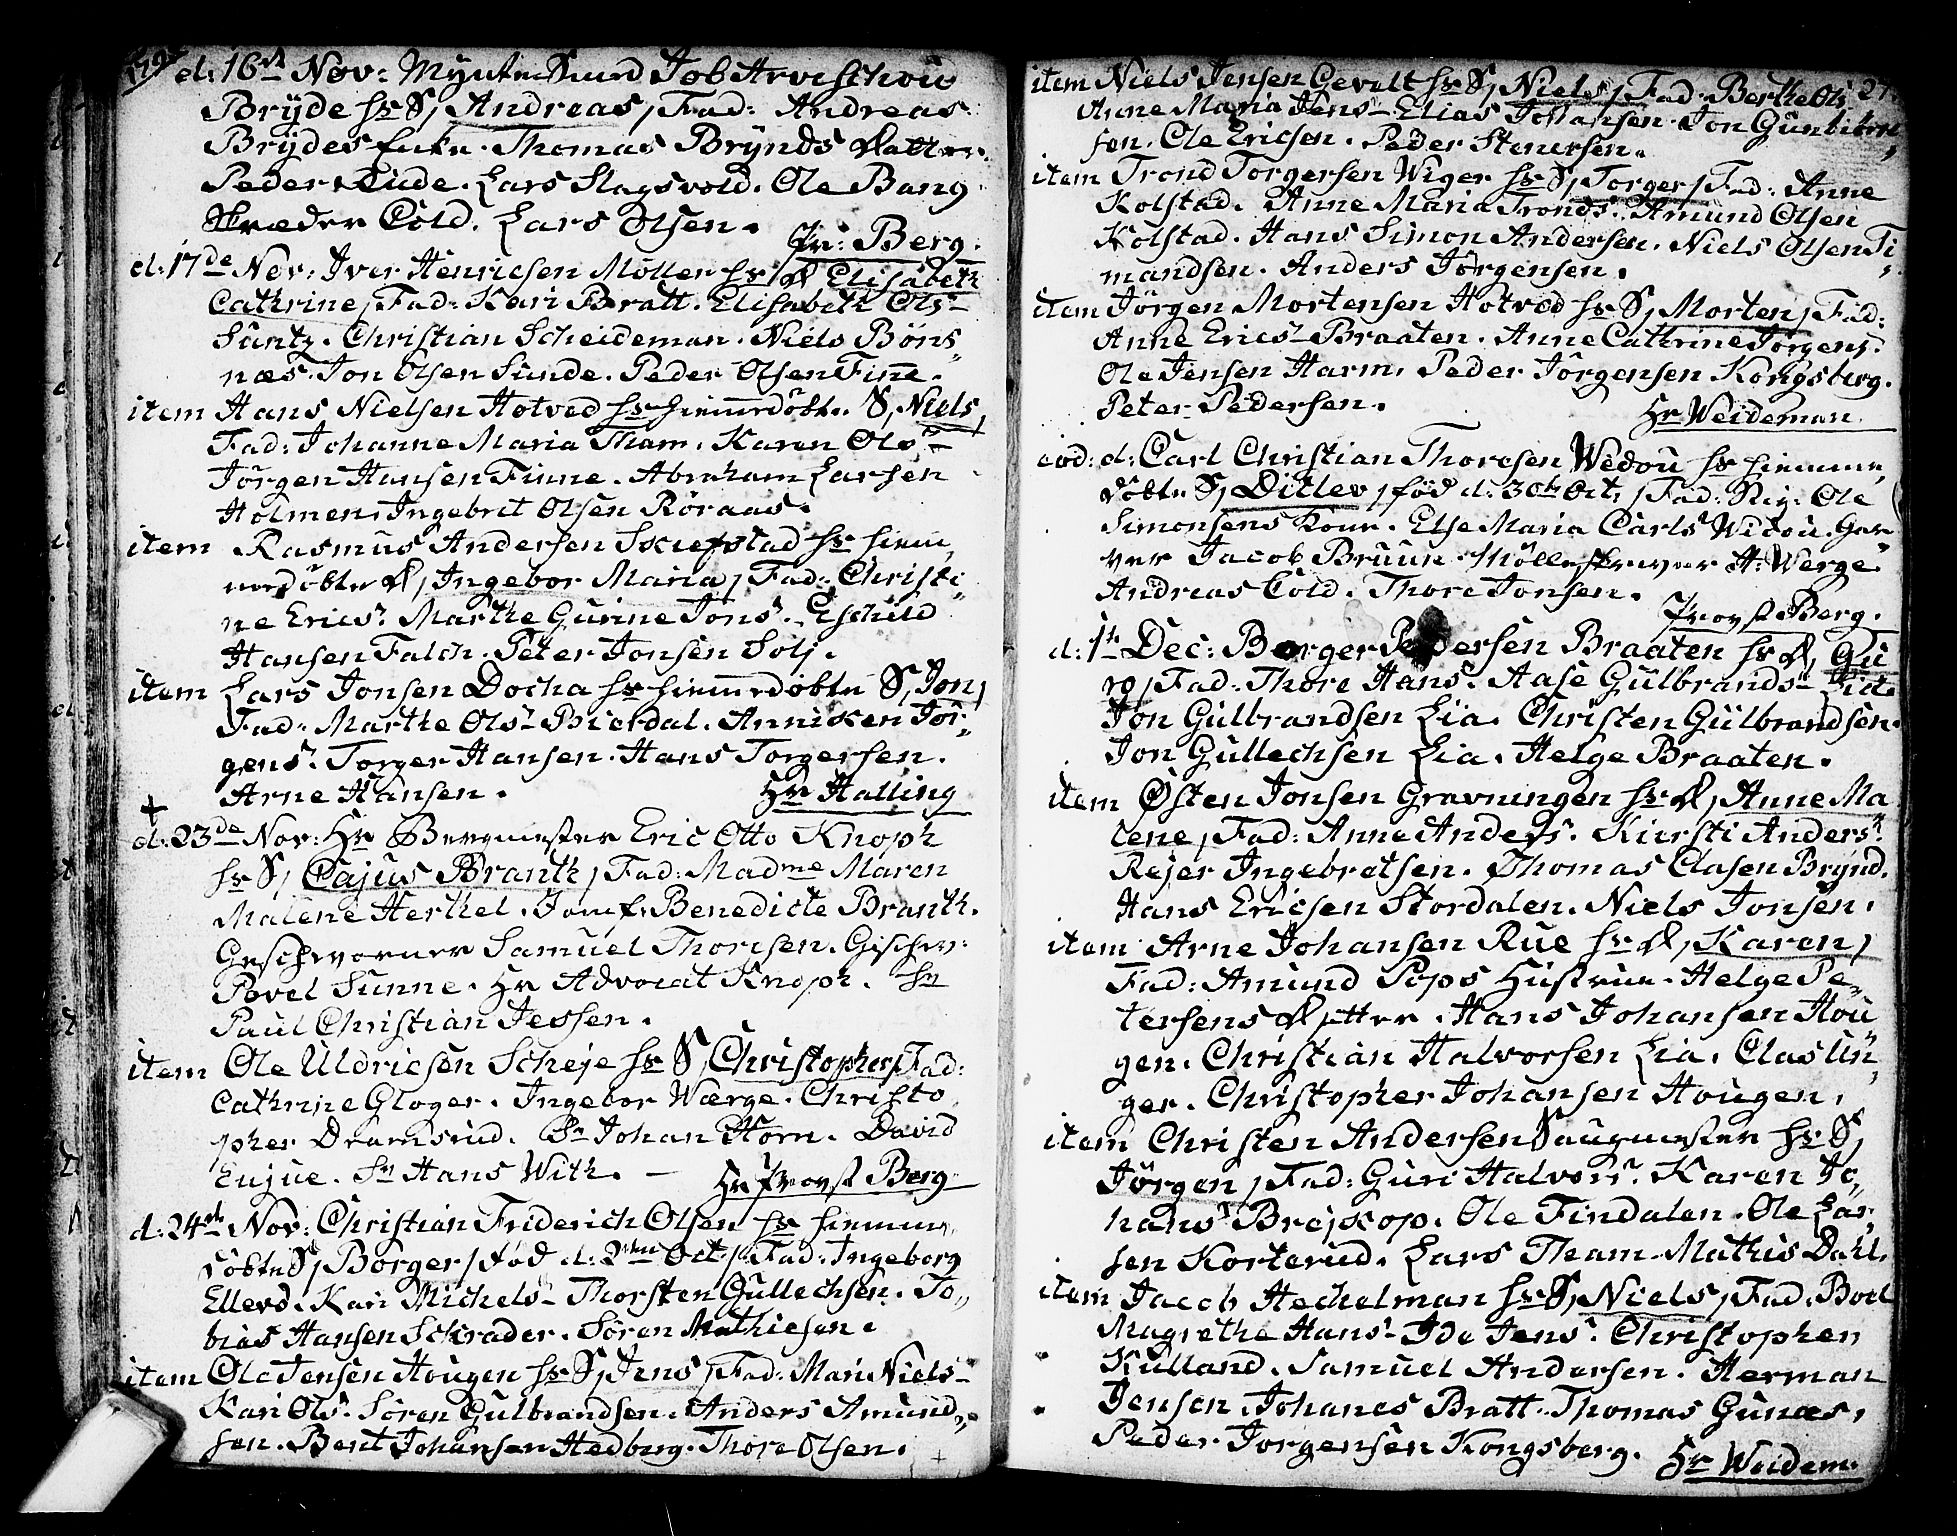 d: 16de Nov: Myntersvend Job Arveschou
Bryde hs: S, Andreas, Fad: Andreas
Brydes Enke. Thomas Brynds Datter.
Peder Lude. Lars Slagsvold. Ole Bang
Skræder Cold. Lars Olsen.
Pr: Berg.
d: 17de Nov: Iver Henricsen Möller hs: D, Elisabeth
Cathrine, Fad: Kari Bratt. Elisabeth Ols-
Suntz. Christian Scheideman. Niels Böns,,
næs. Jon Olsen Sunde. Peder Olsen Finne.
item Hans Nielsen Hotved hs: hiemmedöbte S, Niels,
Fad: Johanne Maria Tham. Karen Ols-
Jörgen Hansen Finne. Abraham Larsen
Holmen. Ingebret Olsen Röraas.
item Rasmus Andersen Skiefstad hs: hiem,,
medöbte D, Ingebor Maria, Fad: Christi,,
ne Erics. Marthe Gurine Jons. Eschild
Hansen Falch. Peter Jonsen Solj.
item Lars Jonsen Docka hs: hiemmedöbte S, Jon,
Fad: Marthe Ols. Bierdal. Annichen Jör,,
gens. Torger Hansen. Hans Torgersen.
Arne Hansen. Hr Halling
+
d: 23de Nov: Hr Bergmester Eric Otto Knoph
hs: S, Cajus Branth, Fad: Madme Maren
Malene Herthel. Jomf: Benedicte Branth.
Geschworner Samuel Thoresen. Geschw:
Povel Sunne. Hr Advocat Knoph. Sr
Paul Christian Jessen.
item Ole Uldricsen Scheje hs: S, Christopher, Fad:
Cathrine Gloger. Ingebor Wærge. Christo,,
pher Dramsrud. Sr Johan Horn. David
Enjue. Sr Hans With. — Hr Provst Berg
d: 24de Nov: Christian Friderich Olsen hs: hiemme,,
döbte S, Börger, föd d: 2den Oct:, Fad: Ingeborg
Ellevd. Kari Michels- Thorsten Gullechsen. To,,
bias Hansen Schrader. Sören Mathiesen.
item Ole Jensen Hougen hs: S, Jens, Fad: Mari Niels-
Kari Ols. Sören Gulbrandsen. Anders Amund,,
sen. Bent Johansen Hedberg. Thore Olsen.
item Niels Jensen Gevelt hs: S, Niels, Fad: Berthe Ols
Anne Maria Jens- Elias Johansen. Jon Gunbiörn,,
sen. Ole Ericsen. Peder Stenersen.
item Trond Torgersen Wiger hs: S, Torger, Fad: Anne
Kolstad. Anne Maria Tronds. Amund Olsen
Kolstad. Hans Simon Andersen. Niels Olsen Ti,,
mandsen. Anders Jörgensen.
item Jörgen Mortensen Hotved hs: S, Morten, Fad:
Anne Erics- Braaten. Anne Cathrine Jörgens.
Ole Jensen Harm. Peder Jörgensen Kongsberg.
Peter Pedersen. Hr Weideman
eod: d: Carl Christian Thoresen Wedou hs: hiemme,,
döbte S, Ditlev, föd d: 30te Oct:, Fad: Sig: Ole
Simonsens Kone. Else Maria Carls Widou. Gar,,
ver Jacob Bruun. Mölleskriver A: Werge
Andreas Cold. Thore Jonsen.
Provst Berg.
d: 1te Dec: Borger Pedersen Braaten hs: D, Gu
ro, Fad: Thore Hans. Aase Gulbrands- Lia
Jon Gulbrandsen Lia. Christen Gulbrandsen.
Jon Gullechsen Lia. Helge Braaten.
item Östen Jonsen Gravningen hs: D, Anne Ma
lene, Fad: Anne Anders. Kiersti Anders.
Rejer Ingebretsen. Thomas Clasen Brynd.
Hans Ericsen Stordalen. Niels Jonsen.
item Arne Johansen Rue hs: D, Karen,
Fad: Amund Pips Hustrue. Helge Pe,,
tersens Datter. Hans Johansen Hou
gen. Christian Halvorsen Lia. Clas Un,,
ger. Christopher Johansen Hougen.
item Christen Andersen Saugmester hs: S,
Jörgen, Fad: Guri Halvors. Karen Jo,,
hans. Brejskop. Ole Findalen. Ole Lar,,
sen Korterud. Lars Tham. Mathis Dahl.
item Jacob Hechelman hs: S, Niels, Fad: Boel
Magrethe Hans- Ide Jens. Christopher
Kulland. Samuel Andersen. Herman
Jensen. Johanes Bratt. Thomas Gunæs.
Peder Jorgensen Kongsberg. Hr Weidem.